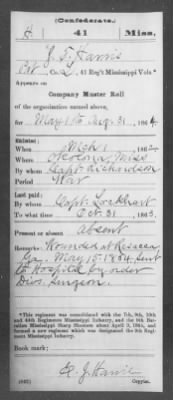 (Confederate.)
H 41 Miss.
J. T. Harris
Pvt, Co. L, 41 Reg't Mississippi Vols.*
Appears on
Company Muster Roll
of the organization named above,
for May 1 to Aug. 31, 1864.
Enlisted:
When Mch 1, 1862
Where Okolona, Miss
By whom Capt. Richardson
Period War
Last paid:
By whom Capt. Lockhart
To what time Oct 31, 1863.
Present or absent absent
Remarks: Wounded at Resaca
Ga. May 15 1864 Sent
to Hospital by order
Div. Surgeon.
*This regiment was consolidated with the 7th, 9th, 10th
and 44th Regiments Mississippi Infantry, and the 9th Bat-
talion Mississippi Sharp Shooters about April 9, 1865, and
formed a new regiment which was designated the 9th Regi-
ment Mississippi Infantry.
Book mark:
E. J. Harris
(642) Copyist.